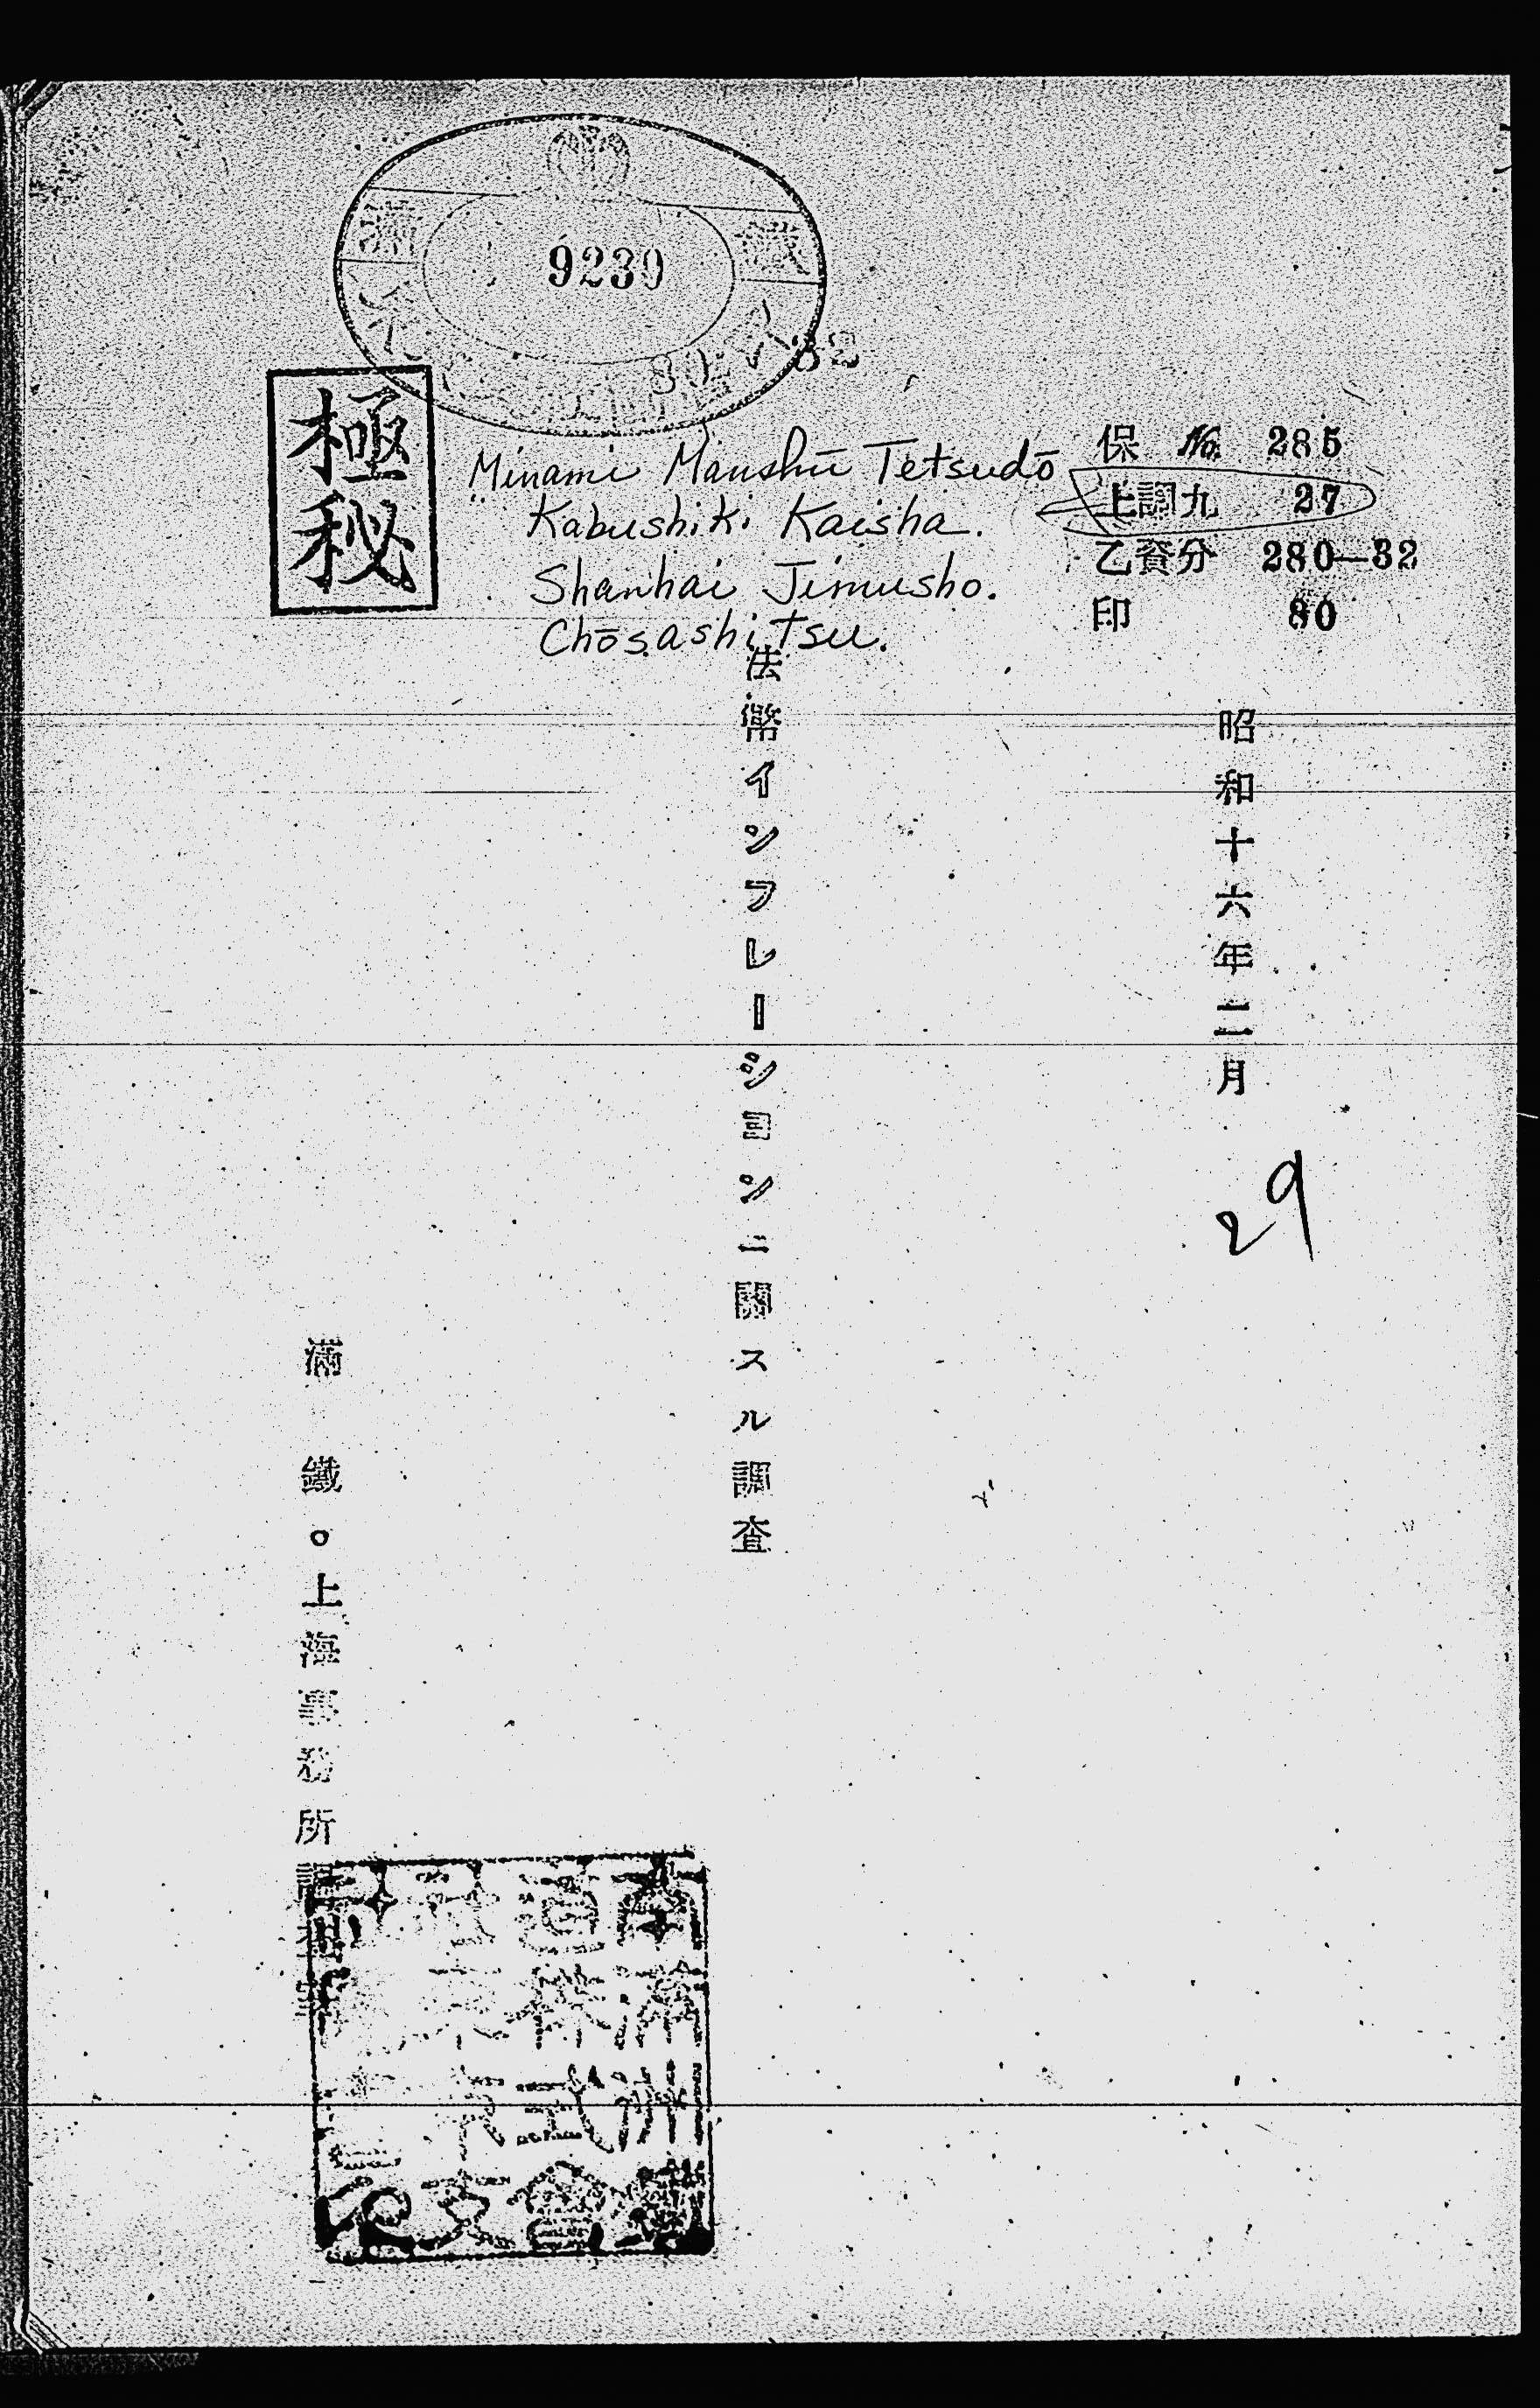 9230
32
極秘
Minami Manshū Tetsudō
Kabushiki Kaisha.
Shanhai Jimusho.
Chōsashitsu.
保 No. 285
上調九 27
乙資分 280—32
印 80
昭和十六年二月
29
法幣インフレーションニ關スル調査
滿鐵。上海事務所